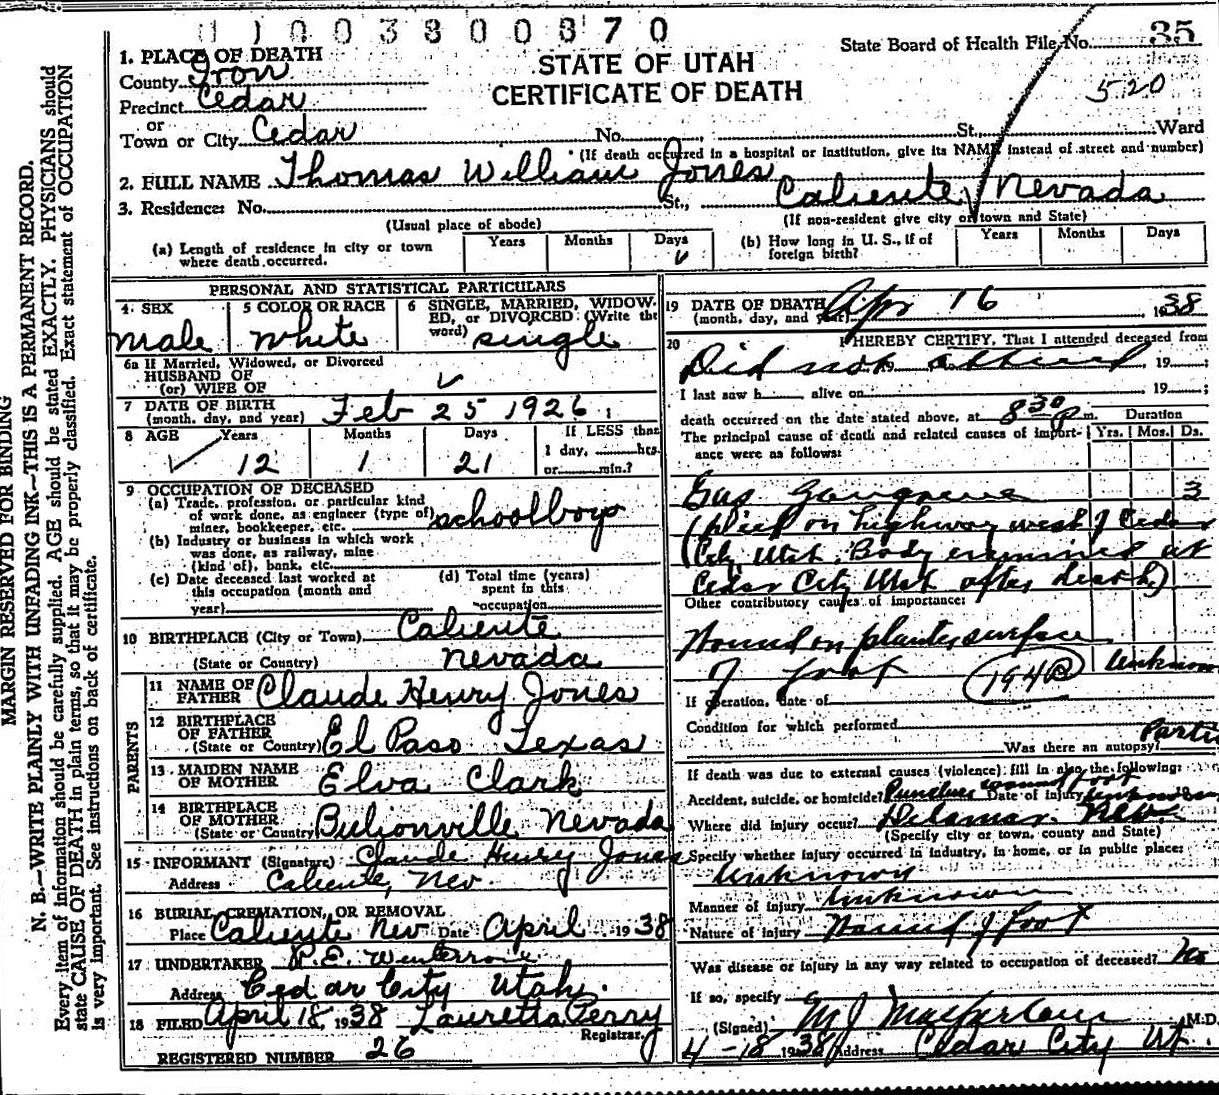 1 1 0 0 3 8 0 0 8 7 0
35
State Board of Health File No.
520
STATE OF UTAH
CERTIFICATE OF DEATH
1. PLACE OF DEATH
County Iron
Precinct Cedar
or
Town or City Cedar No. St., Ward
(If death occurred in a hospital or institution, give its NAME instead of street and number)
2. FULL NAME Thomas William Jones
3. Residence: No. St., Caliente, Nevada
(Usual place of abode) (If non-resident give city or town and State)
(a) Length of residence in city or town where death occurred. Years Months Days
(b) How long in U. S., if of foreign birth? Years Months Days
PERSONAL AND STATISTICAL PARTICULARS
4. SEX male
5 COLOR OR RACE white
6 SINGLE, MARRIED, WIDOWED, or DIVORCED (Write the word) single
6a If Married, Widowed, or Divorced
HUSBAND OF
(or) WIFE OF
7 DATE OF BIRTH (month, day, and year) Feb 25 1926
8 AGE Years 12 Months 1 Days 21 If LESS than 1 day, hrs. or min.?
9 OCCUPATION OF DECEASED
(a) Trade, profession, or particular kind of work done, as engineer (type of) miner, bookkeeper, etc. schoolboy
(b) Industry or business in which work was done, as railway, mine (kind of), bank, etc.
(c) Date deceased last worked at this occupation (month and year)
(d) Total time (years) spent in this occupation
10 BIRTHPLACE (City or Town) Caliente
(State or Country) Nevada
PARENTS
11 NAME OF FATHER Claude Henry Jones
12 BIRTHPLACE OF FATHER (State or Country) El Paso Texas
13 MAIDEN NAME OF MOTHER Elva Clark
14 BIRTHPLACE OF MOTHER (State or Country) Bulionville Nevada
15 INFORMANT (Signature) Claude Henry Jones
Address Caliente, Nev.
16 BURIAL, CREMATION, OR REMOVAL
Place Caliente Nev Date April 1938
17 UNDERTAKER
Address Cedar City Utah.
18 FILED April 18, 1938 Lauretta Perry
Registrar.
REGISTERED NUMBER 26
19 DATE OF DEATH (month, day, and year) Apr 16 1938
20 I HEREBY CERTIFY, That I attended deceased from
Did not attend 19
I last saw h alive on 19
death occurred on the date stated above, at 8 30 p m.
The principal cause of death and related causes of importance were as follows:
Duration Yrs. Mos. Ds.
Gas Gangrene 3
(Died on highway west of Cedar
City, Utah. Body examined at
Cedar City Utah after death)
Other contributory causes of importance:
Wound on plantar surface
of foot 1940 Unknown
If operation, date of
Condition for which performed
Was there an autopsy? Parti
If death was due to external causes (violence) fill in also the following:
Accident, suicide, or homicide? Puncture wound foot Date of injury unknown
Where did injury occur? Delamar Nev.
(Specify city or town, county and State)
Specify whether injury occurred in industry, in home, or in public place:
Unknown
Manner of injury Unknown
Nature of injury Wound of Foot
Was disease or injury in any way related to occupation of deceased? No
If so, specify
(Signed) M J Macfarlane M.D.
4-18 1938 Address Cedar City Ut.
MARGIN RESERVED FOR BINDING
N. B.—WRITE PLAINLY WITH UNFADING INK—THIS IS A PERMANENT RECORD.
Every item of information should be carefully supplied. AGE should be stated EXACTLY. PHYSICIANS should
state CAUSE OF DEATH in plain terms, so that it may be properly classified. Exact statement of OCCUPATION
is very important. See instructions on back of certificate.